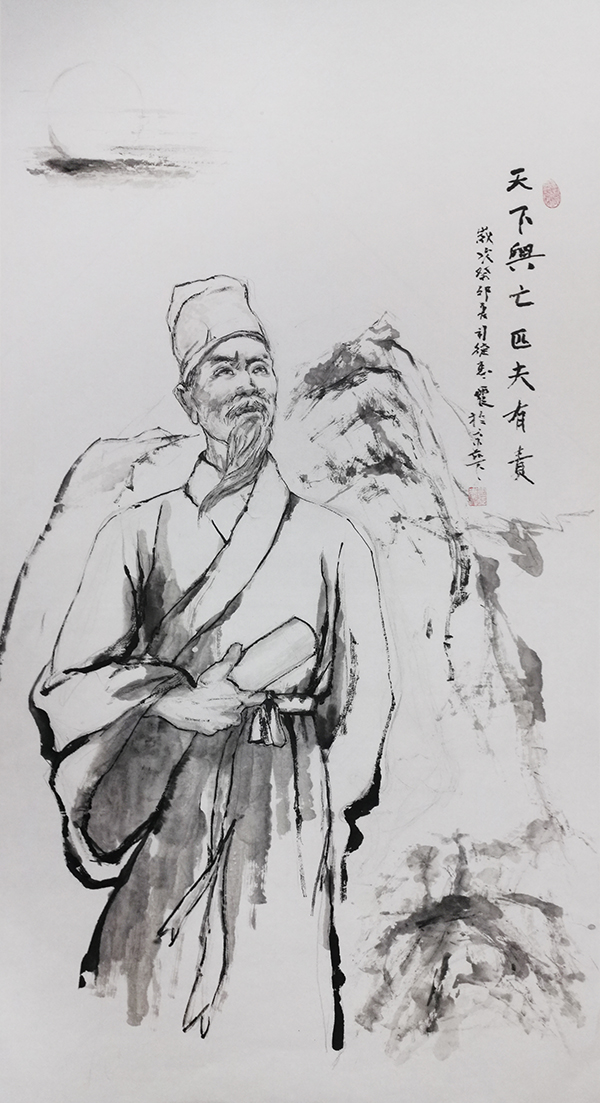 天下興亡匹夫有責
歲次癸卯春司徒惠霞於京華